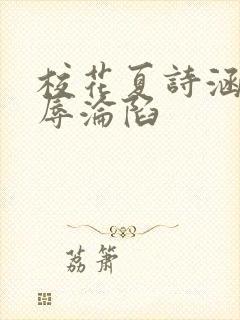 校花夏詩涵
辱淪陷
荔簫